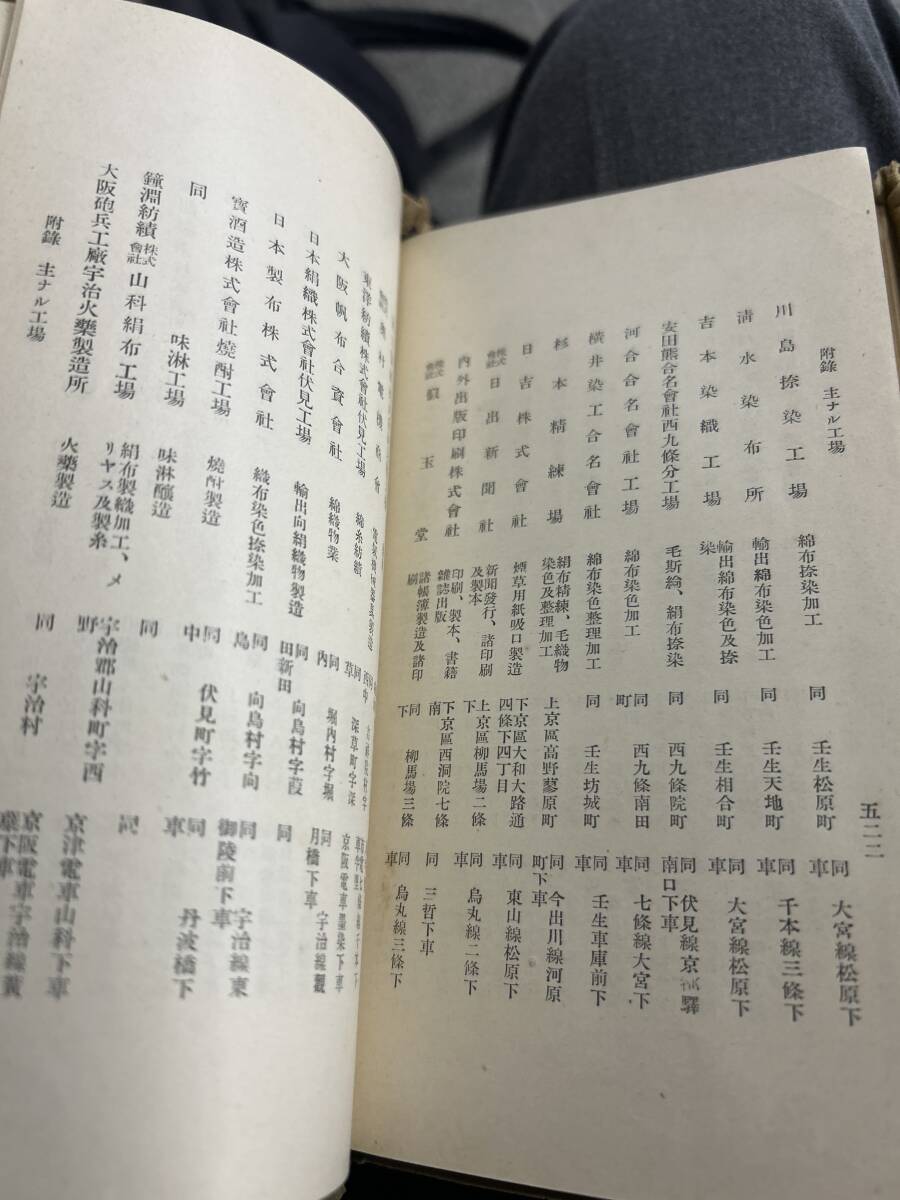 附錄 主ナル工場
五二二
川島捺染工場 綿布捺染加工 同 壬生松原町 同 大宮線松原下車
淸水染布所 輸出綿布染色加工 同 壬生天地町 同 千本線三條下車
吉本染織工場 輸出綿布染色及捺染 同 壬生相合町 同 大宮線松原下車
安田熊合名會社西九條分工場 毛斯綸、絹布捺染 同 西九條院町 伏見線京都驛南口下車
河合合名會社工場 綿布染色加工 同 西九條南田町 同 七條線大宮下車
橫井染工合名會社 綿布染色整理加工 同 壬生坊城町 同 壬生車庫前下車
杉本精練場 絹布精練、毛織物染色及整理加工 上京區高野蓼原町 同 今出川線河原町下車
日吉株式會社 煙草用紙吸口製造 下京區大和大路通四條下四丁目 同 東山線松原下車
株式會社日出新聞社 新聞發行、諸印刷及製本 上京區柳馬場二條下 同 烏丸線二條下車
內外出版印刷株式會社 印刷、製本、書籍雜誌出版 下京區西洞院七條南 同 三哲下車
株式會社 玉堂 諸帳簿製造及諸印刷 同 柳馬場三條下 同 烏丸線三條下車
東洋紡績株式會社伏見工場 綿糸紡績 同 深草町字深草 京阪電車墨染下車
大阪帆布合資會社 綿織物業 同 堀内村字堀内 同 宇治線觀月橋下車
日本絹織株式會社伏見工場 輸出向絹織物製造 同 向島村字葭田新田 同
日本製布株式會社 織布染色捺染加工 同 向島村字向島 同 宇治線東御陵前下車
寶酒造株式會社燒酎工場 燒酎製造 同 伏見町字竹中 同 丹波橋下車
同 味淋工場 味淋釀造 同 同
鐘淵紡績株式會社山科絹布工場 絹布製織加工、メリヤス及製糸 宇治郡山科町字西野 京津電車山科下車
大阪砲兵工廠宇治火藥製造所 火藥製造 同 宇治村 京阪電車宇治線黃檗下車
附錄 主ナル工場